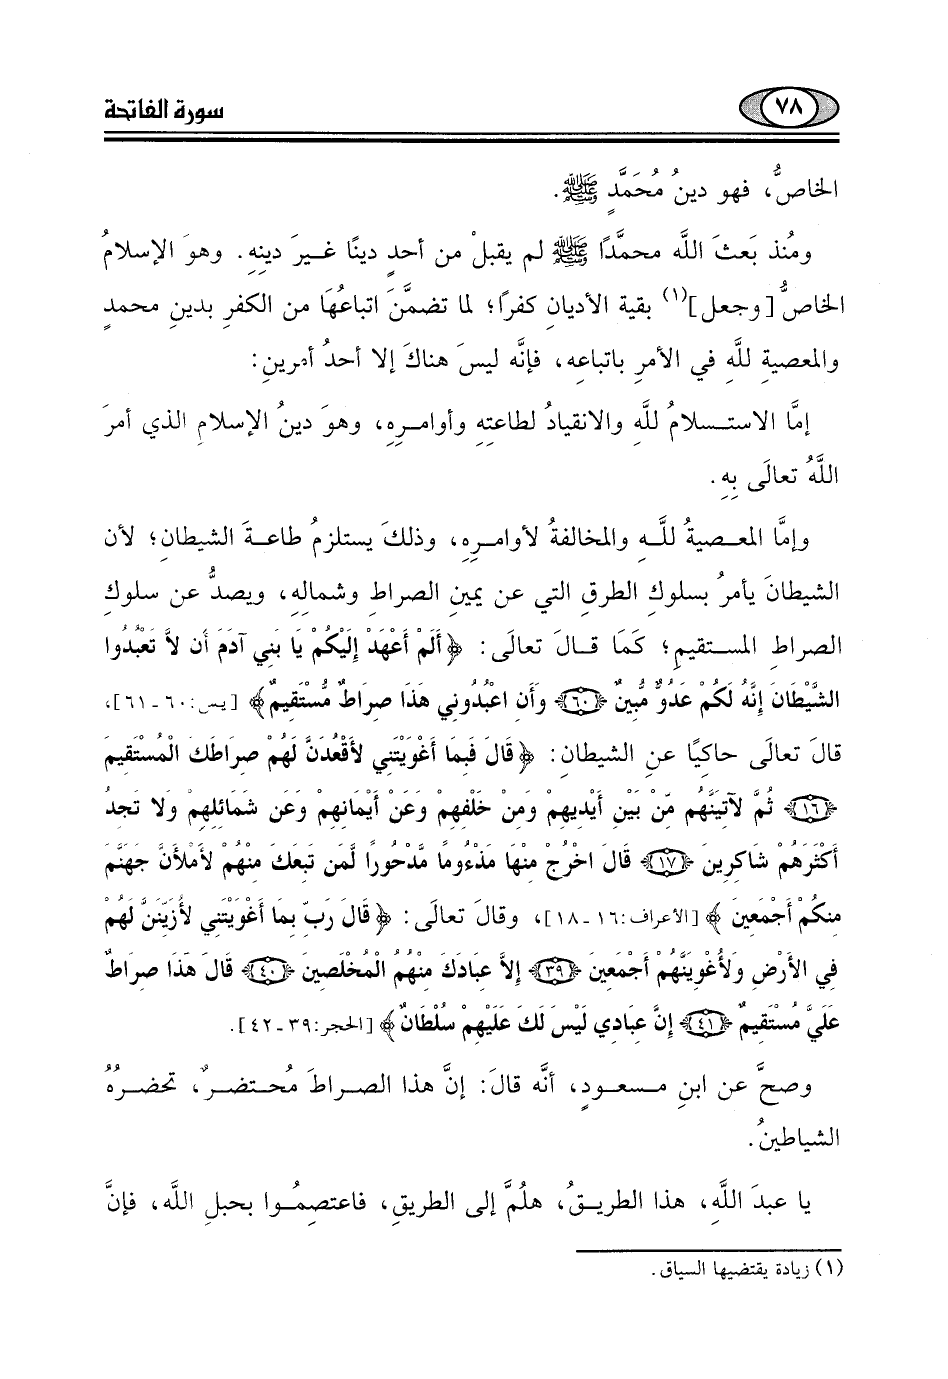 ٧٨
سورة الفاتحة
الخاصُّ، فهو دينُ مُحَمَّدٍ ﷺ.
ومُنذ بَعثَ اللَّه محمدًا ﷺ لم يقبلْ من أحدٍ دينًا غيرَ دينِهِ. وهوَ الإسلامُ
الخاصُّ [وجعل](١) بقية الأديانِ كفرًا؛ لما تضمَّنَ اتباعُهَا من الكفرِ بدينِ محمدٍ
والمعصيةِ للَّهِ في الأمرِ باتباعه، فإنَّه ليسَ هناكَ إلا أحدُ أمرينِ:
إمَّا الاستسلامُ للَّهِ والانقيادُ لطاعتِهِ وأوامرِهِ، وهوَ دينُ الإسلامِ الذي أمرَ
اللَّهُ تعالَى بِهِ.
وإمَّا المعصيةُ للَّهِ والمخالفةُ لأوامرِهِ، وذلكَ يستلزمُ طاعةَ الشيطانِ؛ لأن
الشيطانَ يأمرُ بسلوكِ الطرقِ التي عن يمينِ الصراطِ وشمالِهِ، ويصدُّ عن سلوكِ
الصراطِ المستقيمِ؛ كمَا قالَ تعالَى: ﴿أَلَمْ أَعْهَدْ إِلَيْكُمْ يَا بَنِي آدَمَ أَن لاَّ تَعْبُدُوا
الشَّيْطَانَ إِنَّهُ لَكُمْ عَدُوٌّ مُّبِينٌ ﴿٦٠﴾ وَأَنِ اعْبُدُونِي هَذَا صِرَاطٌ مُّسْتَقِيمٌ﴾ [يس:٦٠-٦١]،
قالَ تعالَى حاكيًا عن الشيطانِ: ﴿قَالَ فَبِمَا أَغْوَيْتَنِي لأَقْعُدَنَّ لَهُمْ صِرَاطَكَ الْمُسْتَقِيمَ
﴿١٦﴾ ثُمَّ لآتِيَنَّهُم مِّنْ بَيْنِ أَيْدِيهِمْ وَمِنْ خَلْفِهِمْ وَعَنْ أَيْمَانِهِمْ وَعَن شَمَائِلِهِمْ وَلا تَجِدُ
أَكْثَرَهُمْ شَاكِرِينَ ﴿١٧﴾ قَالَ اخْرُجْ مِنْهَا مَذْءُومًا مَّدْحُورًا لَّمَن تَبِعَكَ مِنْهُمْ لأَمْلأَنَّ جَهَنَّمَ
مِنكُمْ أَجْمَعِينَ﴾ [الأعراف:١٦-١٨]، وقالَ تعالَى: ﴿قَالَ رَبِّ بِمَا أَغْوَيْتَنِي لأُزَيِّنَنَّ لَهُمْ
فِي الأَرْضِ وَلأُغْوِيَنَّهُمْ أَجْمَعِينَ ﴿٣٩﴾ إِلاَّ عِبَادَكَ مِنْهُمُ الْمُخْلَصِينَ ﴿٤٠﴾ قَالَ هَذَا صِرَاطٌ
عَلَيَّ مُسْتَقِيمٌ ﴿٤١﴾ إِنَّ عِبَادِي لَيْسَ لَكَ عَلَيْهِمْ سُلْطَانٌ﴾ [الحجر:٣٩-٤٢].
وصحَّ عن ابنِ مسعودٍ، أنَّه قالَ: إنَّ هذا الصراطَ مُحتضرٌ، تحضرُهُ
الشياطينُ.
يا عبدَ اللَّهِ، هذا الطريقُ، هلُمَّ إلى الطريقِ، فاعتصِمُوا بحبلِ اللَّه، فإنَّ
(١) زيادة يقتضيها السياق.